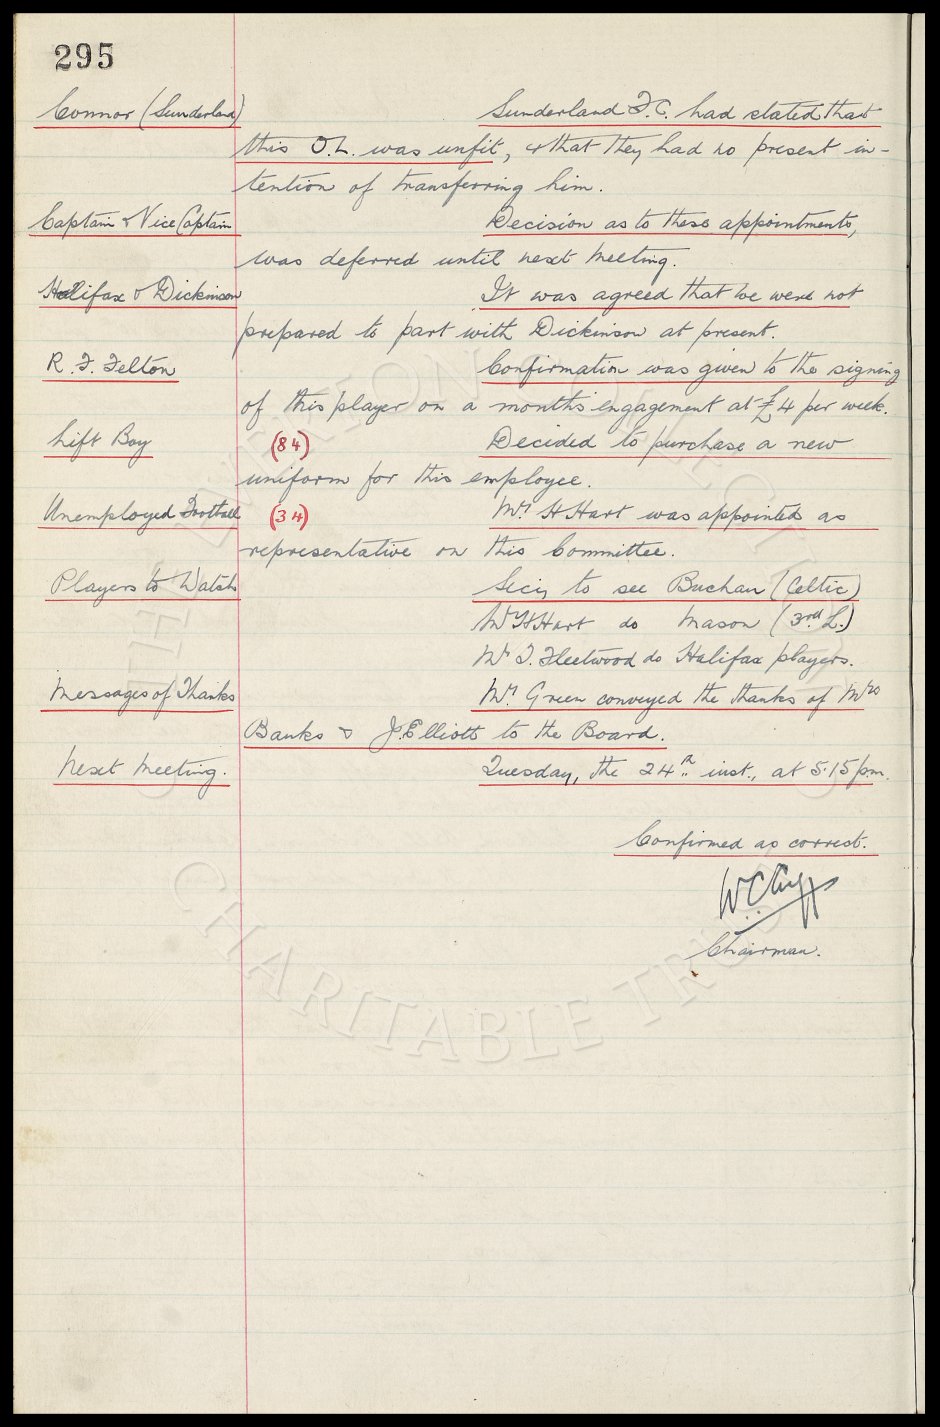 295
Connor (Sunderland) Sunderland F.C. had stated that
this O.L. was unfit, & that they had no present in-
tention of transferring him.
Captain & Vice Captain Decision as to these appointments,
was deferred until next meeting.
Halifax & Dickinson It was agreed that we were not
prepared to part with Dickinson at present.
R. F. Felton Confirmation was given to the signing
of this player on a month's engagement at £4 per week.
Lift Boy (84) Decided to purchase a new
uniform for this employee.
Unemployed Football (34) Mr. H Hart was appointed as
representative on this Committee.
Players to Watch Secy to see Buchan (Celtic)
Mr H Hart do Mason (3rd L.)
Mr J. Fleetwood do Halifax players.
Messages of Thanks Mr. Green conveyed the thanks of Mrs
Banks & J. Elliott to the Board.
Next Meeting. Tuesday, the 24th inst., at 5.15 p.m.
Confirmed as correct.
W C Cuff
Chairman.
THE EVERTON COLLECTION
CHARITABLE TRUST